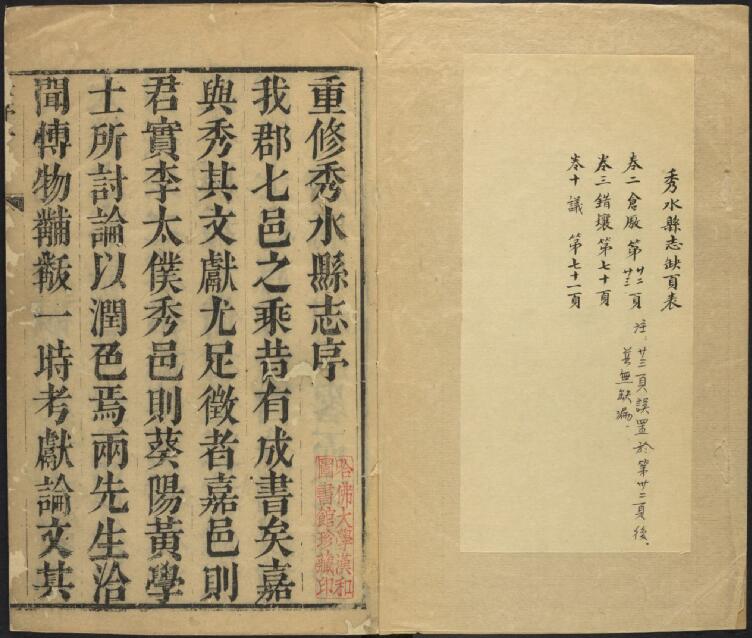 秀水縣志缺頁表
卷二倉廒第廿二廿三頁
注：廿三頁誤置於第廿二頁後．
並無缺漏．
卷三錯壤第七十頁
卷十議第七十一頁
重修秀水縣志序
我郡七邑之乘昔有成書矣嘉
與秀其文獻尤足徵者嘉邑則
君實李太僕秀邑則葵陽黃學
士所討論以潤色焉兩先生洽
聞博物黼黻一時考獻論文其
哈佛大學漢和
圖書館珍藏印